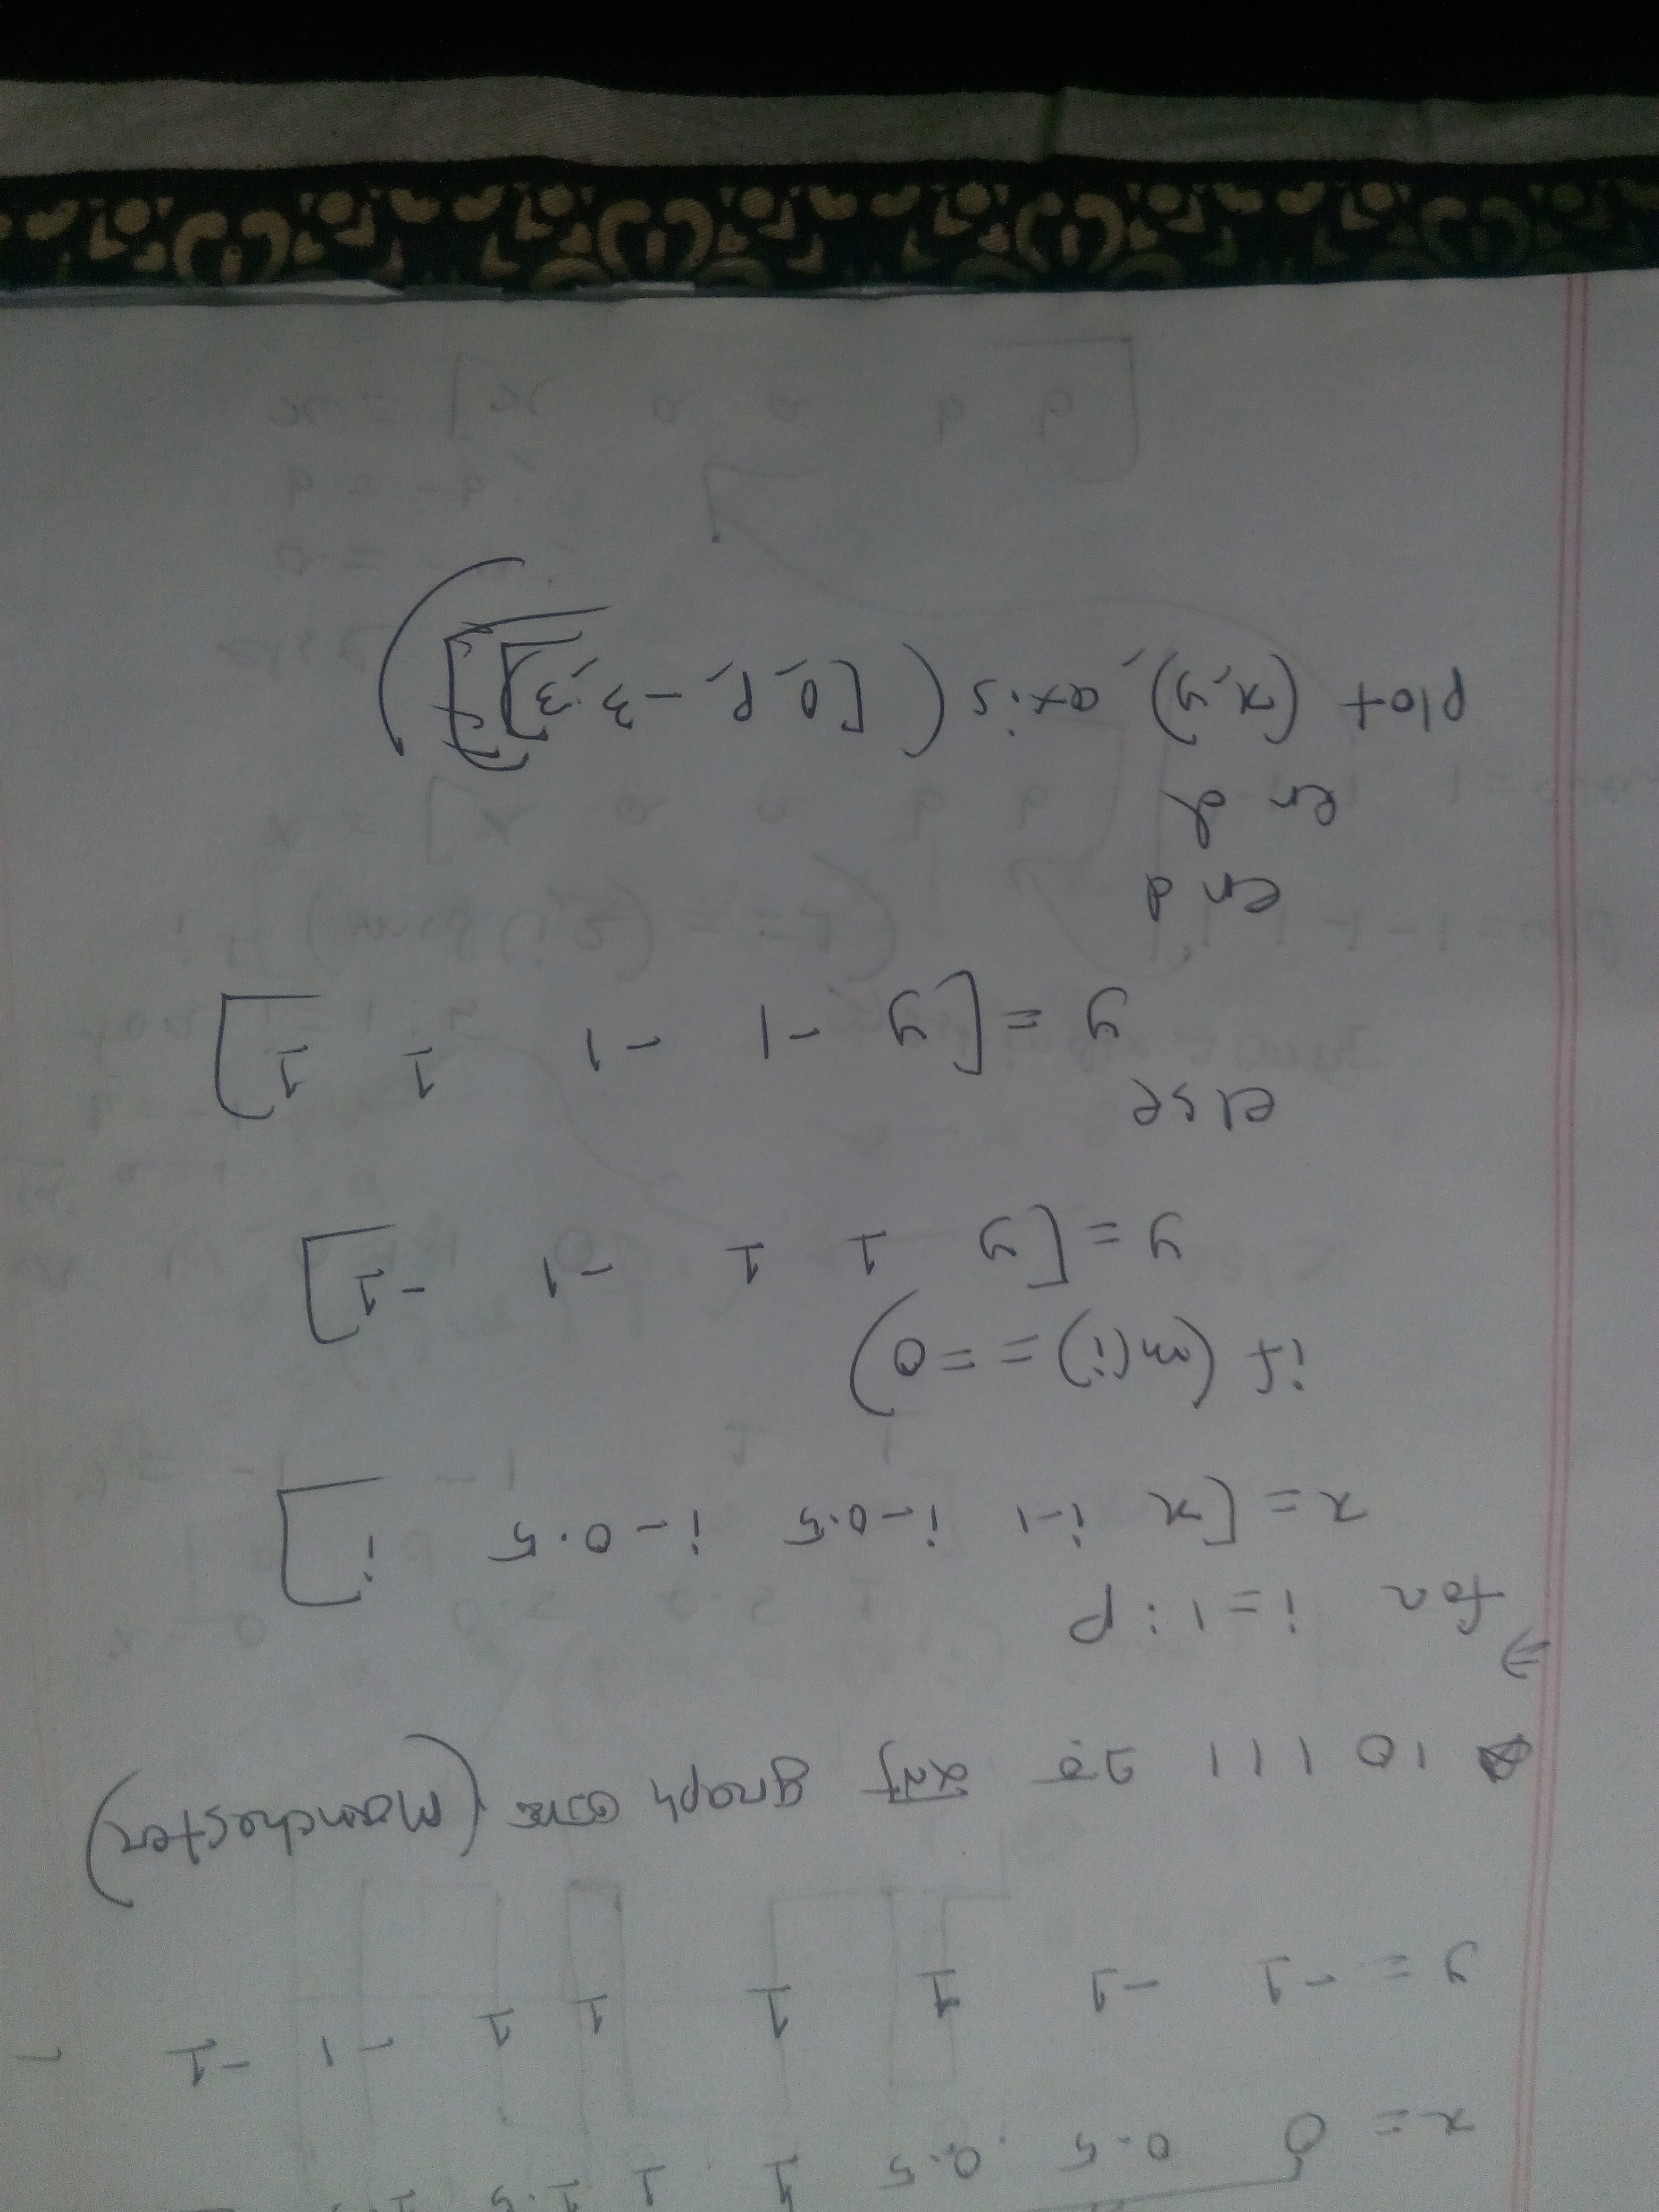 x = 0 0.5 0.5 1 1 1.5
y = -1 -1 1 1 1 1 -1 -1 -
10111 এর জন্য graph আঁক (Manchester)
⇒
for i=1:P
x=[x i-1 i-0.5 i-0.5 i]
if (m(i)==0)
y=[y 1 1 -1 -1]
else
y=[y -1 -1 1 1]
end
end
plot (x,y), axis([0,P,-3,3])